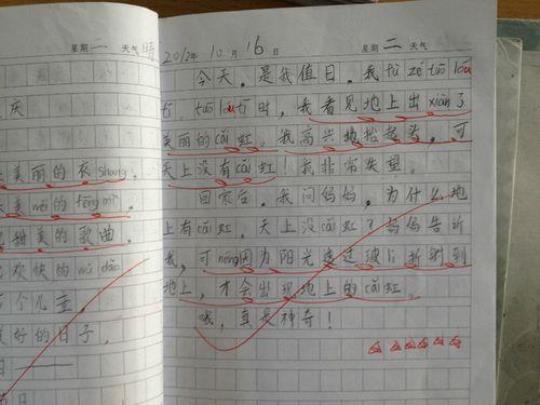 星期 二 天气 晴
庆
美丽的衣shang,
美 mēi 的 fēng mì,
甜美的歌曲。
欢快的 wǔ dǎo
个儿童,
美好的日子。
日——
日
2012年 10月 16日 星期 二 天气
今天,是我值日。我fù zé tuō lóu
tī。tuō lóu tī时,我看见地上出xiàn了
美丽的cǎi虹。我高兴地抬起头,可
天上没有cǎi虹!我非常失望。
回家后,我问妈妈,为什么地
上有cǎi虹,天上没cǎi虹?妈妈告诉
我,可néng因为阳光透过玻l折射到
地上,才会出现地上的cǎi虹。
哦,真是神奇!